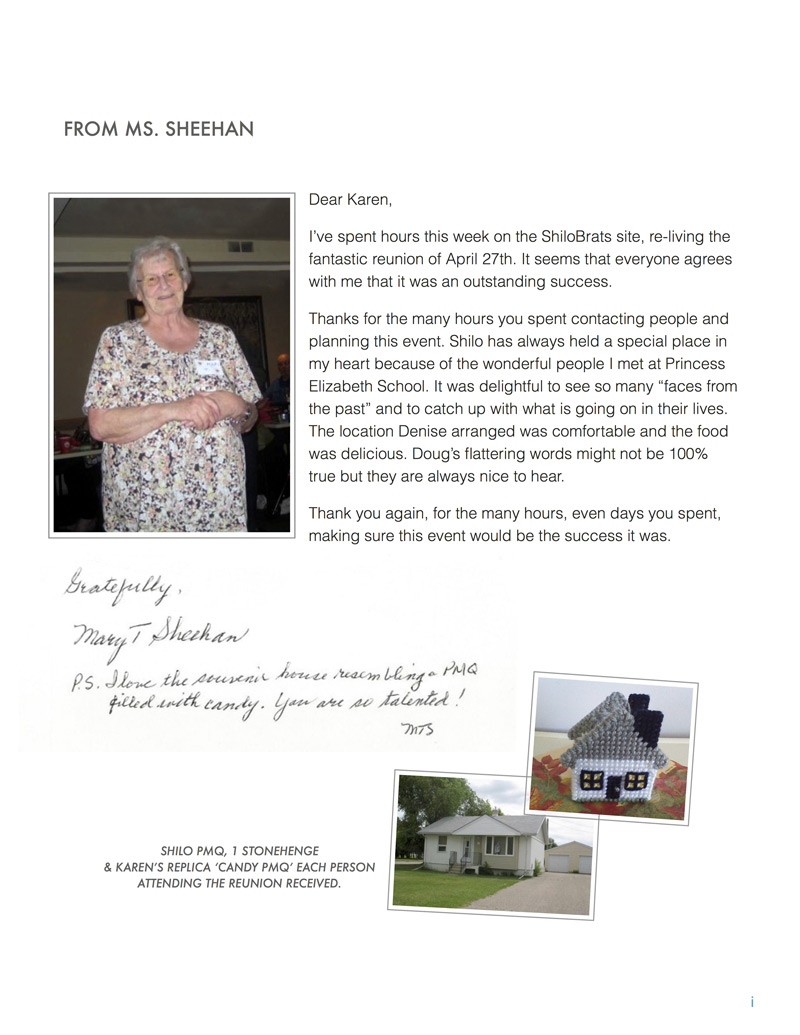 FROM MS. SHEEHAN
Dear Karen,
I've spent hours this week on the ShiloBrats site, re-living the
fantastic reunion of April 27th. It seems that everyone agrees
with me that it was an outstanding success.
Thanks for the many hours you spent contacting people and
planning this event. Shilo has always held a special place in
my heart because of the wonderful people I met at Princess
Elizabeth School. It was delightful to see so many “faces from
the past” and to catch up with what is going on in their lives.
The location Denise arranged was comfortable and the food
was delicious. Doug's flattering words might not be 100%
true but they are always nice to hear.
Thank you again, for the many hours, even days you spent,
making sure this event would be the success it was.
Gratefully,
Mary T Sheehan
P.S. I love the souvenir house resembling a PMQ
filled with candy. You are so talented!
MTS
SHILO PMQ, 1 STONEHENGE
& KAREN'S REPLICA ‘CANDY PMQ’ EACH PERSON
ATTENDING THE REUNION RECEIVED.
i